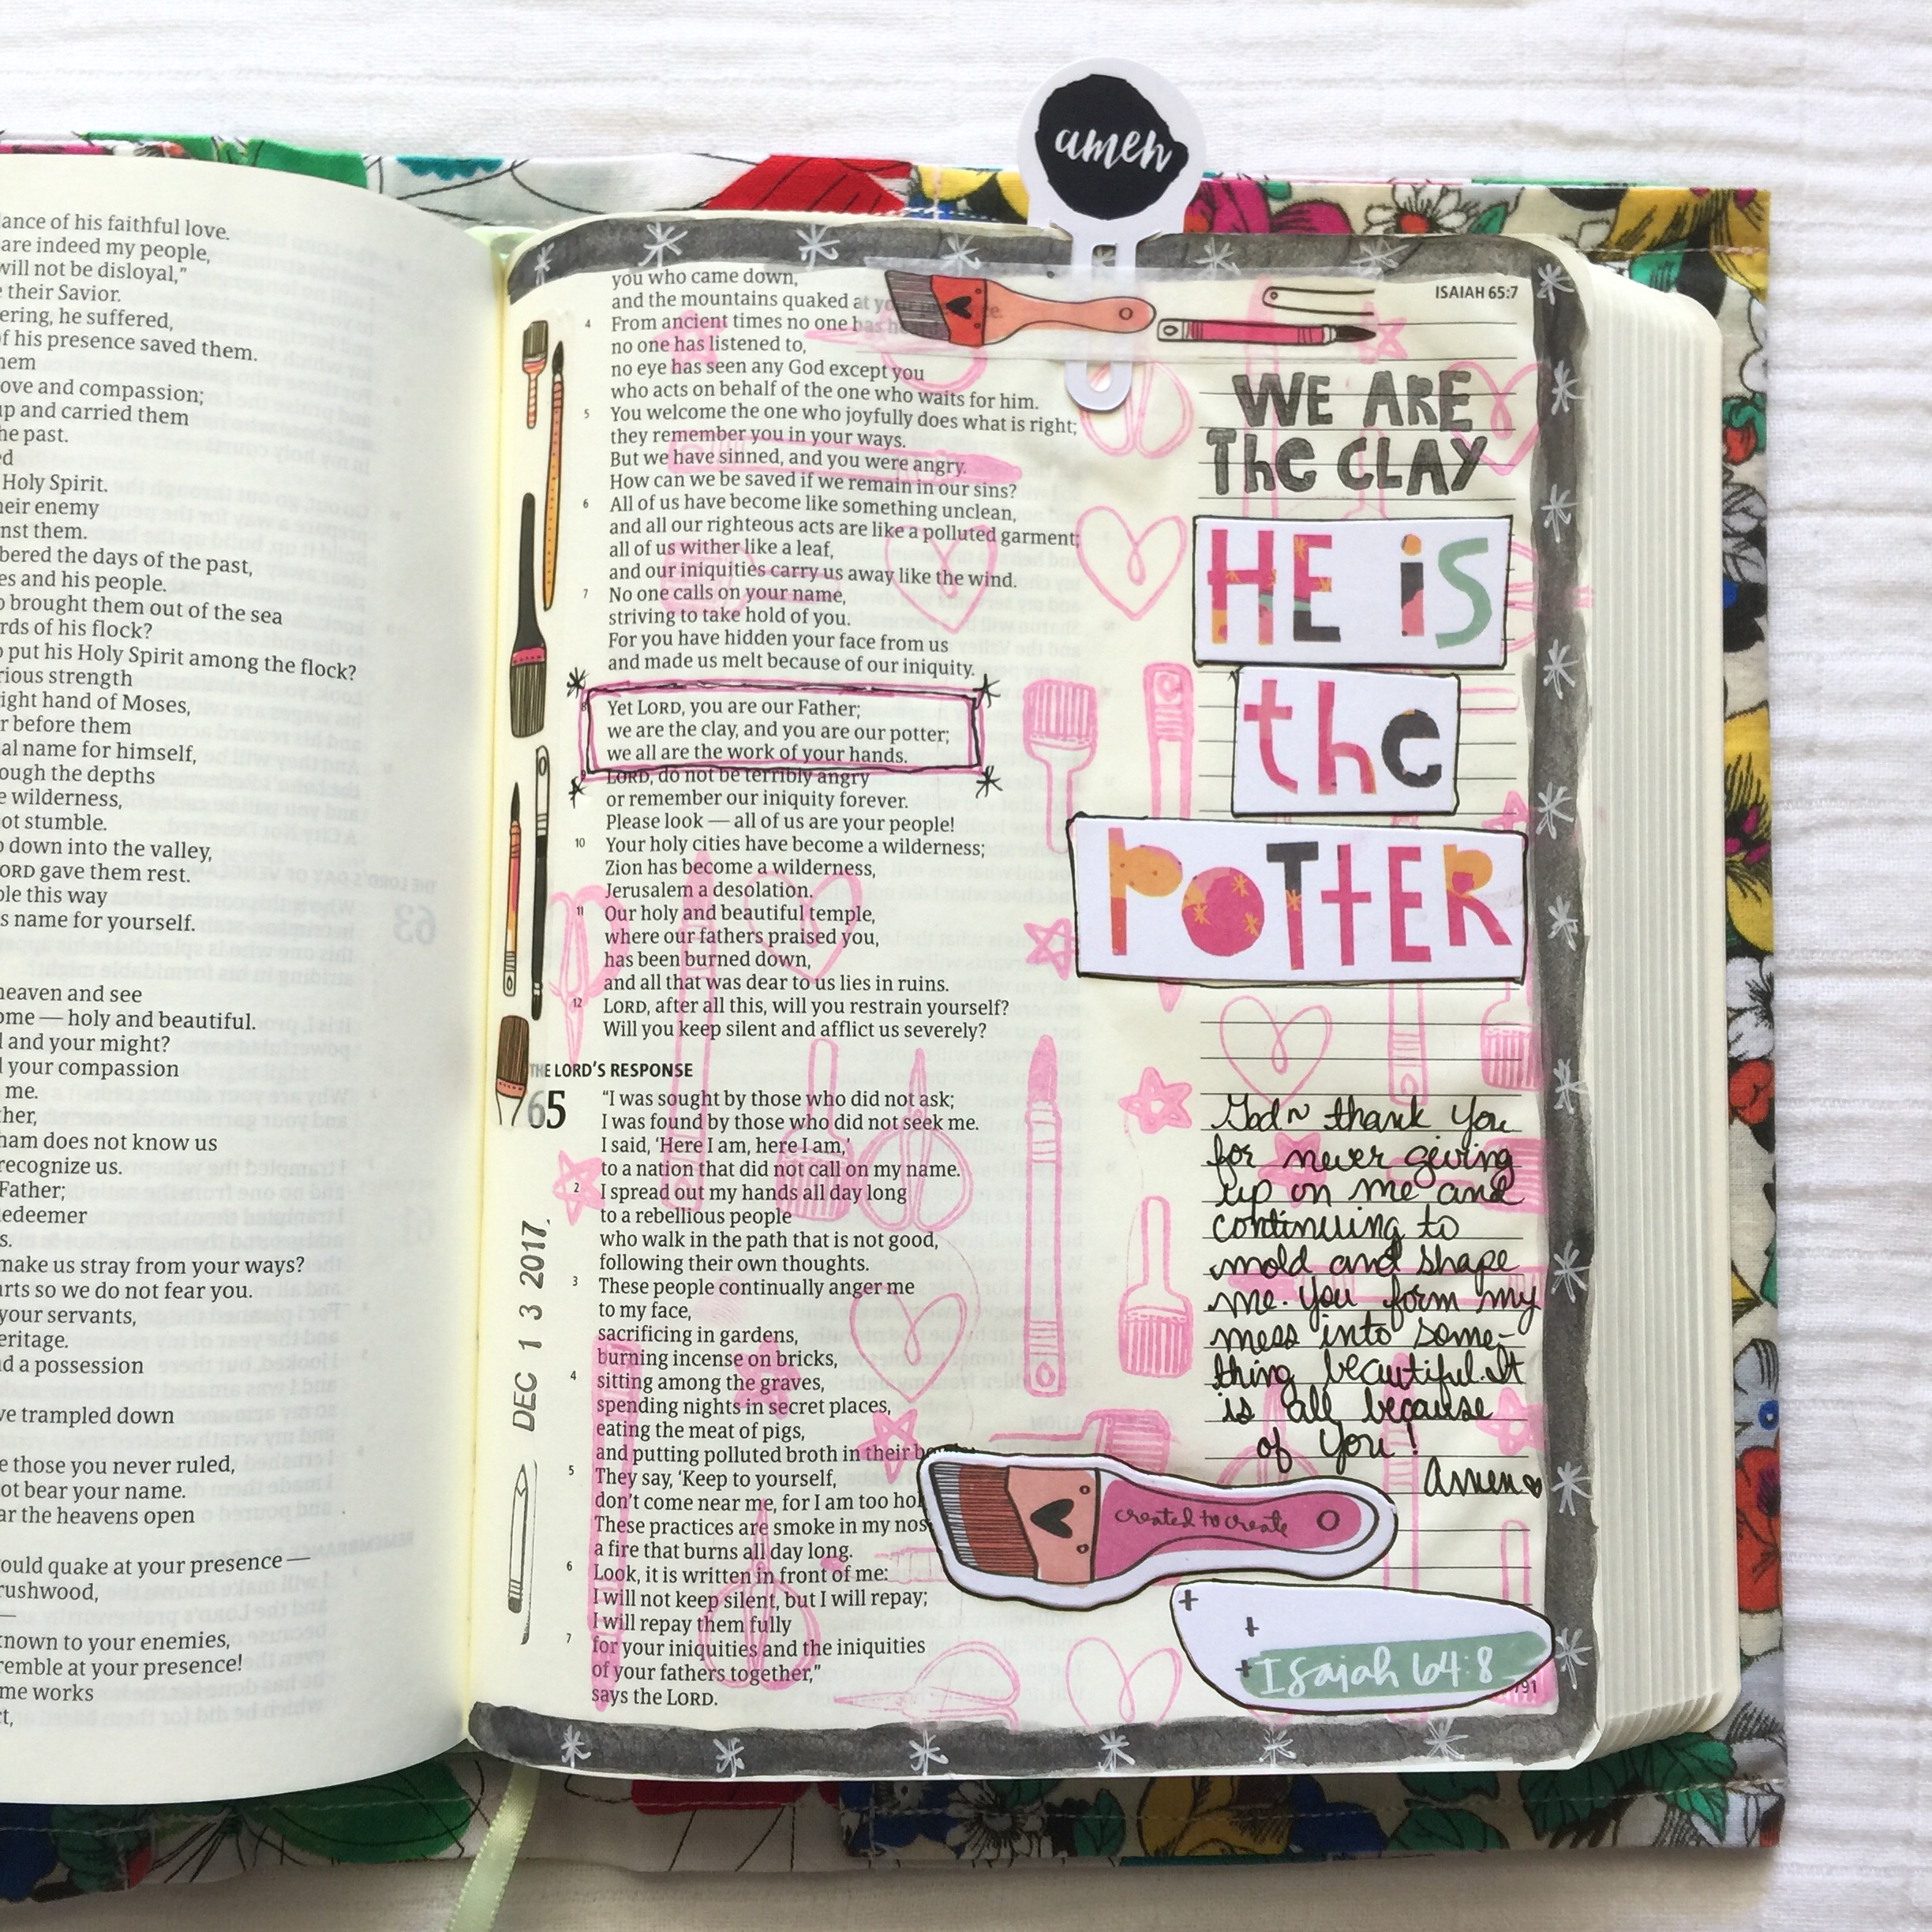 amen
lance of his faithful love.
are indeed my people,
will not be disloyal,”
their Savior.
ering, he suffered,
of his presence saved them.
hem
ove and compassion;
up and carried them
he past.
ed
Holy Spirit.
heir enemy
inst them.
bered the days of the past,
es and his people.
o brought them out of the sea
rds of his flock?
o put his Holy Spirit among the flock?
rious strength
ight hand of Moses,
r before them
al name for himself,
ough the depths
e wilderness,
ot stumble.
o down into the valley,
ORD gave them rest.
ple this way
s name for yourself.
heaven and see
ome — holy and beautiful.
l and your might?
l your compassion
me.
ther,
ham does not know us
recognize us.
Father;
edeemer
s.
make us stray from your ways?
arts so we do not fear you.
your servants,
eritage.
ad a possession
ve trampled down
e those you never ruled,
ot bear your name.
ar the heavens open
ould quake at your presence —
rushwood,
—
known to your enemies,
remble at your presence!
me works
ct,
ISAIAH 65:7
you who came down,
and the mountains quaked at your
4 From ancient times no one has heard
no one has listened to,
no eye has seen any God except you
who acts on behalf of the one who waits for him.
5 You welcome the one who joyfully does what is right;
they remember you in your ways.
But we have sinned, and you were angry.
How can we be saved if we remain in our sins?
6 All of us have become like something unclean,
and all our righteous acts are like a polluted garment;
all of us wither like a leaf,
and our iniquities carry us away like the wind.
7 No one calls on your name,
striving to take hold of you.
For you have hidden your face from us
and made us melt because of our iniquity.
8 Yet LORD, you are our Father;
we are the clay, and you are our potter;
we all are the work of your hands.
9 LORD, do not be terribly angry
or remember our iniquity forever.
Please look — all of us are your people!
10 Your holy cities have become a wilderness;
Zion has become a wilderness,
Jerusalem a desolation.
11 Our holy and beautiful temple,
where our fathers praised you,
has been burned down,
and all that was dear to us lies in ruins.
12 LORD, after all this, will you restrain yourself?
Will you keep silent and afflict us severely?
THE LORD’S RESPONSE
65 “I was sought by those who did not ask;
I was found by those who did not seek me.
I said, ‘Here I am, here I am,’
to a nation that did not call on my name.
2 I spread out my hands all day long
to a rebellious people
who walk in the path that is not good,
following their own thoughts.
3 These people continually anger me
to my face,
sacrificing in gardens,
burning incense on bricks,
4 sitting among the graves,
spending nights in secret places,
eating the meat of pigs,
and putting polluted broth in their
5 They say, ‘Keep to yourself,
don’t come near me, for I am too hol
These practices are smoke in my nos
a fire that burns all day long.
6 Look, it is written in front of me:
I will not keep silent, but I will repay;
I will repay them fully
7 for your iniquities and the iniquities
of your fathers together,”
says the LORD.
DEC 13 2017
WE ARE
THE CLAY
HE is
the
POTTER
God~ thank you
for never giving
up on me and
continuing to
mold and shape
me. You form my
mess into some-
thing beautiful. It
is all because
of You!
Amen
created to create
Isaiah 64:8
791